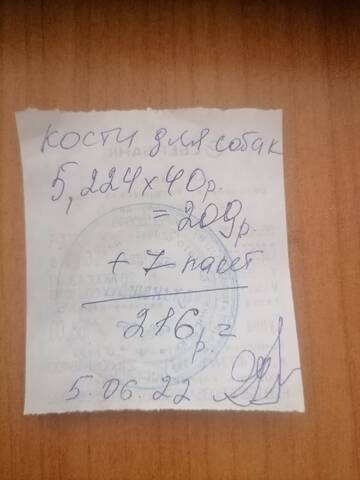 кости для собак
5,224х40р.
= 209р.
+ 7 пакет
216р=
5.06.22